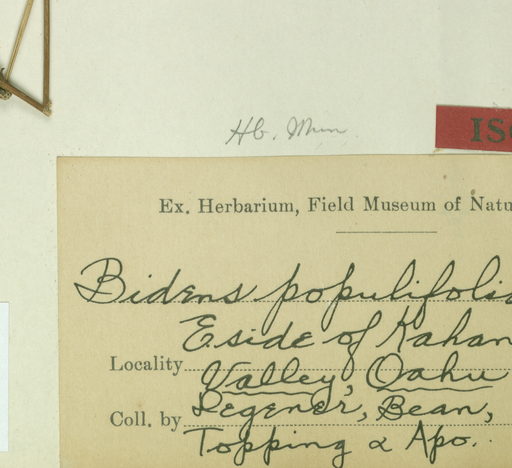 Hb. Mun.
ISO
Ex. Herbarium, Field Museum of Natu
Bidens populifolia
E side of Kahan
Locality Valley, Oahu
Coll. by Degener, Bean,
Topping & Apo.